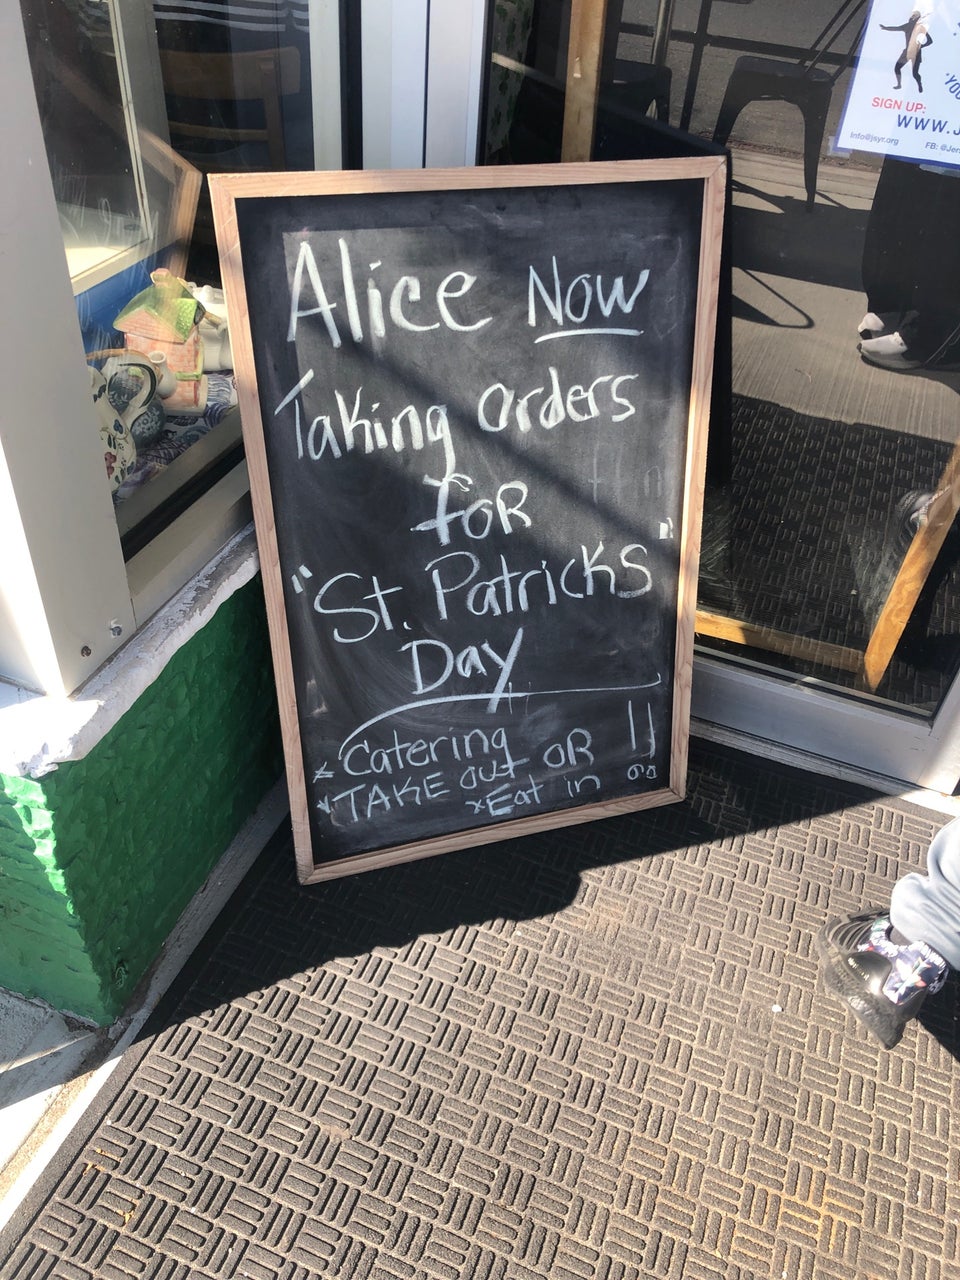 Alice Now
Taking orders
for
"St. Patricks"
Day
* Catering
* TAKE out OR !!
* Eat in
SIGN UP:
WWW.J
Info@jsyr.org
FB: @Jer